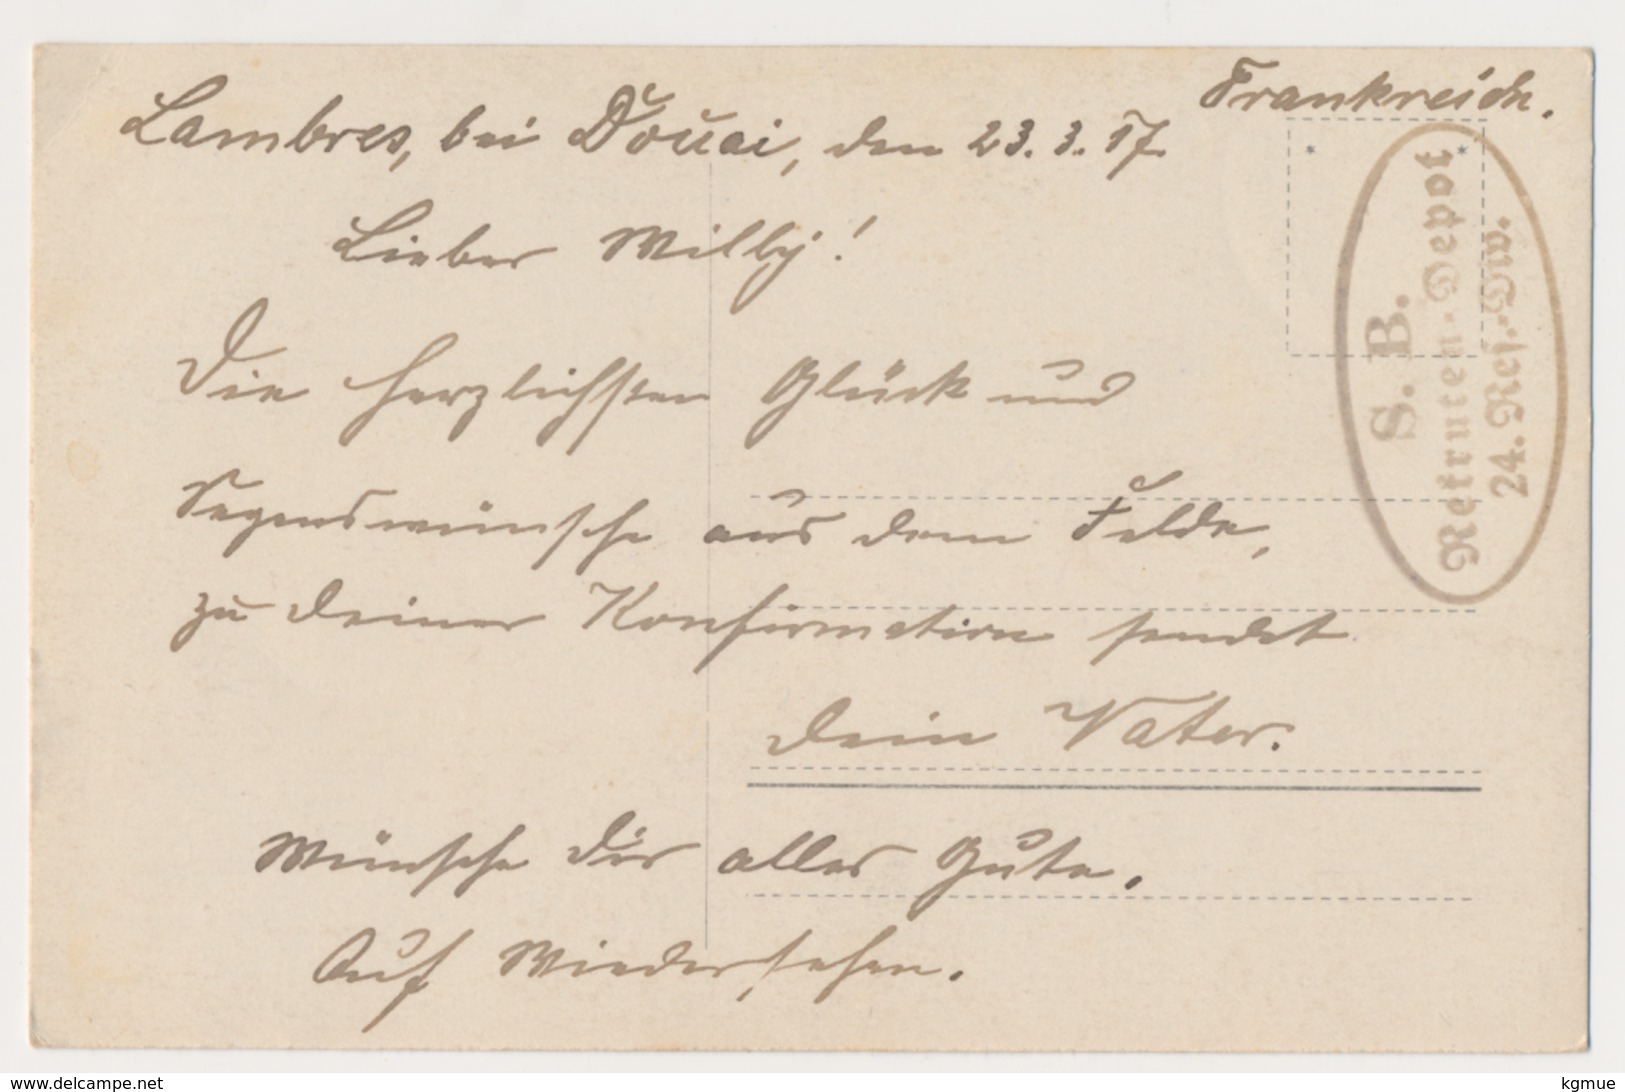 Frankreich.
Lambres, bei Douai, den 23.3.17.
Lieber Willy!
Die herzlichsten Glück und
Segenswünsche aus dem Felde,
zu deiner Konfirmation sendet
dein Vater.
Wünsche dir alles Gute.
Auf Wiedersehen.
S. B.
Rekruten-Depot
24. Res.-Div.
www.delcampe.net
kgmue